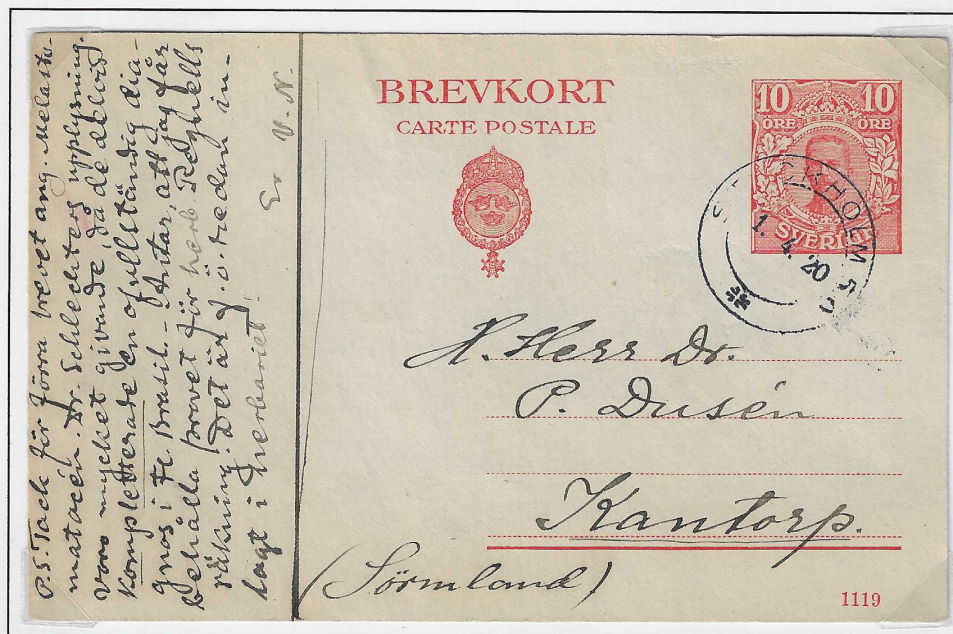 BREVKORT
CARTE POSTALE
10 10
ÖRE ÖRE
SVERIGE
STOCKHOLM 5
1.4.20
H. Herr Dr.
P. Dusén
Kantorp.
(Sörmland)
1119
P.S. Tack för förra brevet ang. Melasto-
matacén. Dr. Schlechters upplysning.
voro mycket givande, då de delvis
kompletterade en ofullständig dia-
gnos i Fl. Brasil. – Antar, att jag får
behålla provet för herb. Regnells
räkning. Det är f. ö. redan in-
lagt i herbariet!
Er V. N.